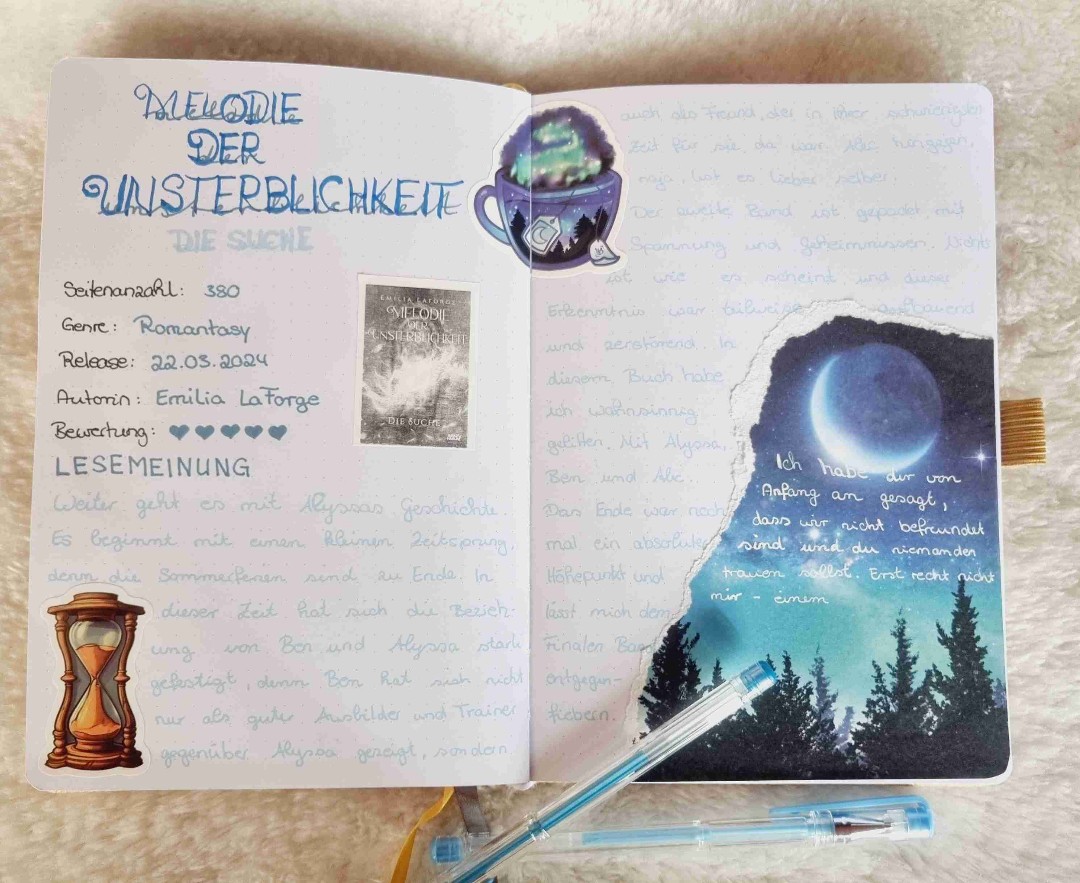 MELODIE
DER
UNSTERBLICHKEIT
DIE SUCHE
Seitenanzahl: 380
Genre: Romantasy
Release: 22.03.2024
Autorin: Emilia LaForge
Bewertung: ♥♥♥♥♥
EMILIA LAFORGE
MELODIE
DER
UNSTERBLICHKEIT
DIE SUCHE
LESEMEINUNG
Weiter geht es mit Alyssas Geschichte.
Es beginnt mit einen kleinen Zeitsprung,
denn die Sommerferien sind zu Ende. In
dieser Zeit hat sich die Bezieh-
ung von Ben und Alyssa stark
gefestigt, denn Ben hat sich nicht
nur als guter Ausbilder und Trainer
gegenüber Alyssa gezeigt, sondern
auch als Freund, der in ihrer schwierigsten
Zeit für sie da war. Alic hingegen,
naja, lest es lieber selber.
Der zweite Band ist gepackt mit
Spannung und Geheimnissen. Nichts
ist wie es scheint und dieser
Erkenntnis war teilweise aufbauend
und zerstörend. In
diesem Buch habe
ich wahnsinnig
gelitten. Mit Alyssa,
Ben und Alic.
Das Ende war noch
mal ein absoluter
Höhepunkt und
lässt mich dem
Finalen Band
entgegen-
fiebern.
Ich habe dir von
Anfang an gesagt,
dass wir nicht befreundet
sind und du niemanden
trauen sollst. Erst recht nicht
mir - einem